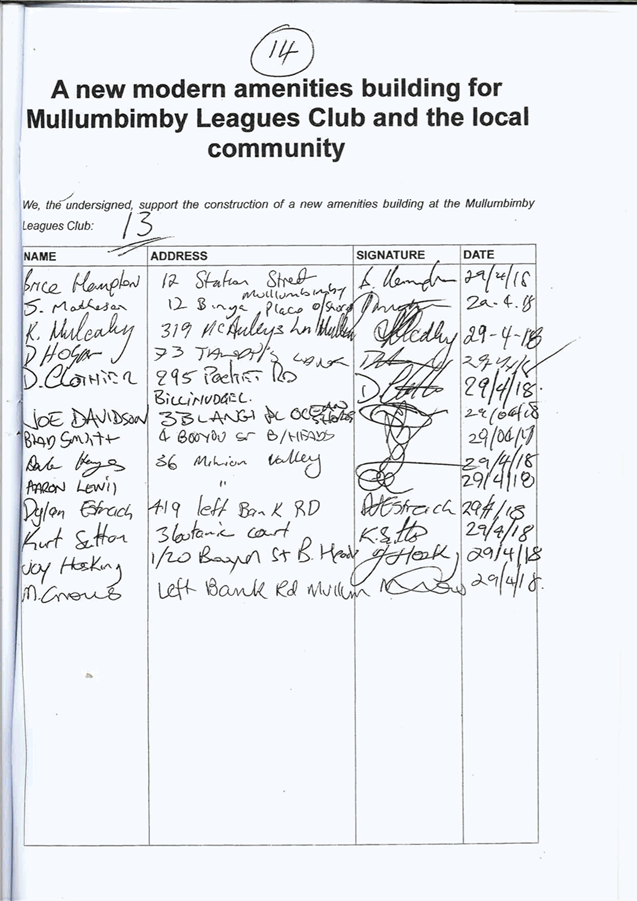 14
A new modern amenities building for
Mullumbimby Leagues Club and the local
community
We, the undersigned, support the construction of a new amenities building at the Mullumbimby
Leagues Club: 13
NAME ADDRESS SIGNATURE DATE
Brice Hampton 12 Station Street 29/4/18
Mullumbimby
S. Matheson 12 Binya Place O/Shores 29.4.18
K. Mulcahy 319 McAuleys Ln Mullum Mulcahy 29-4-18
D HOGAN 73
D. CLOTHIER 295 POCKET RD 29/4/18.
BILLINUDGEL.
JOE DAVIDSON 33 LANGI PL OCEAN SHORES 29/04/18
BRAD SMITH 4 BOOYUN ST B/HEADS 29/04/17
36 Valley 29/4/18
AARON LEWIS " 29/4/18
Dylan Estrach 419 left Bank RD D Estrach 29/4/18
Kurt Sutton 3 botanic court K. Sutto 29/4/18
Jay Hosking 1/20 Booyun St B. Heads J Hosk 29/4/18
M. Crowe Left Bank Rd Mullum 29/4/18.